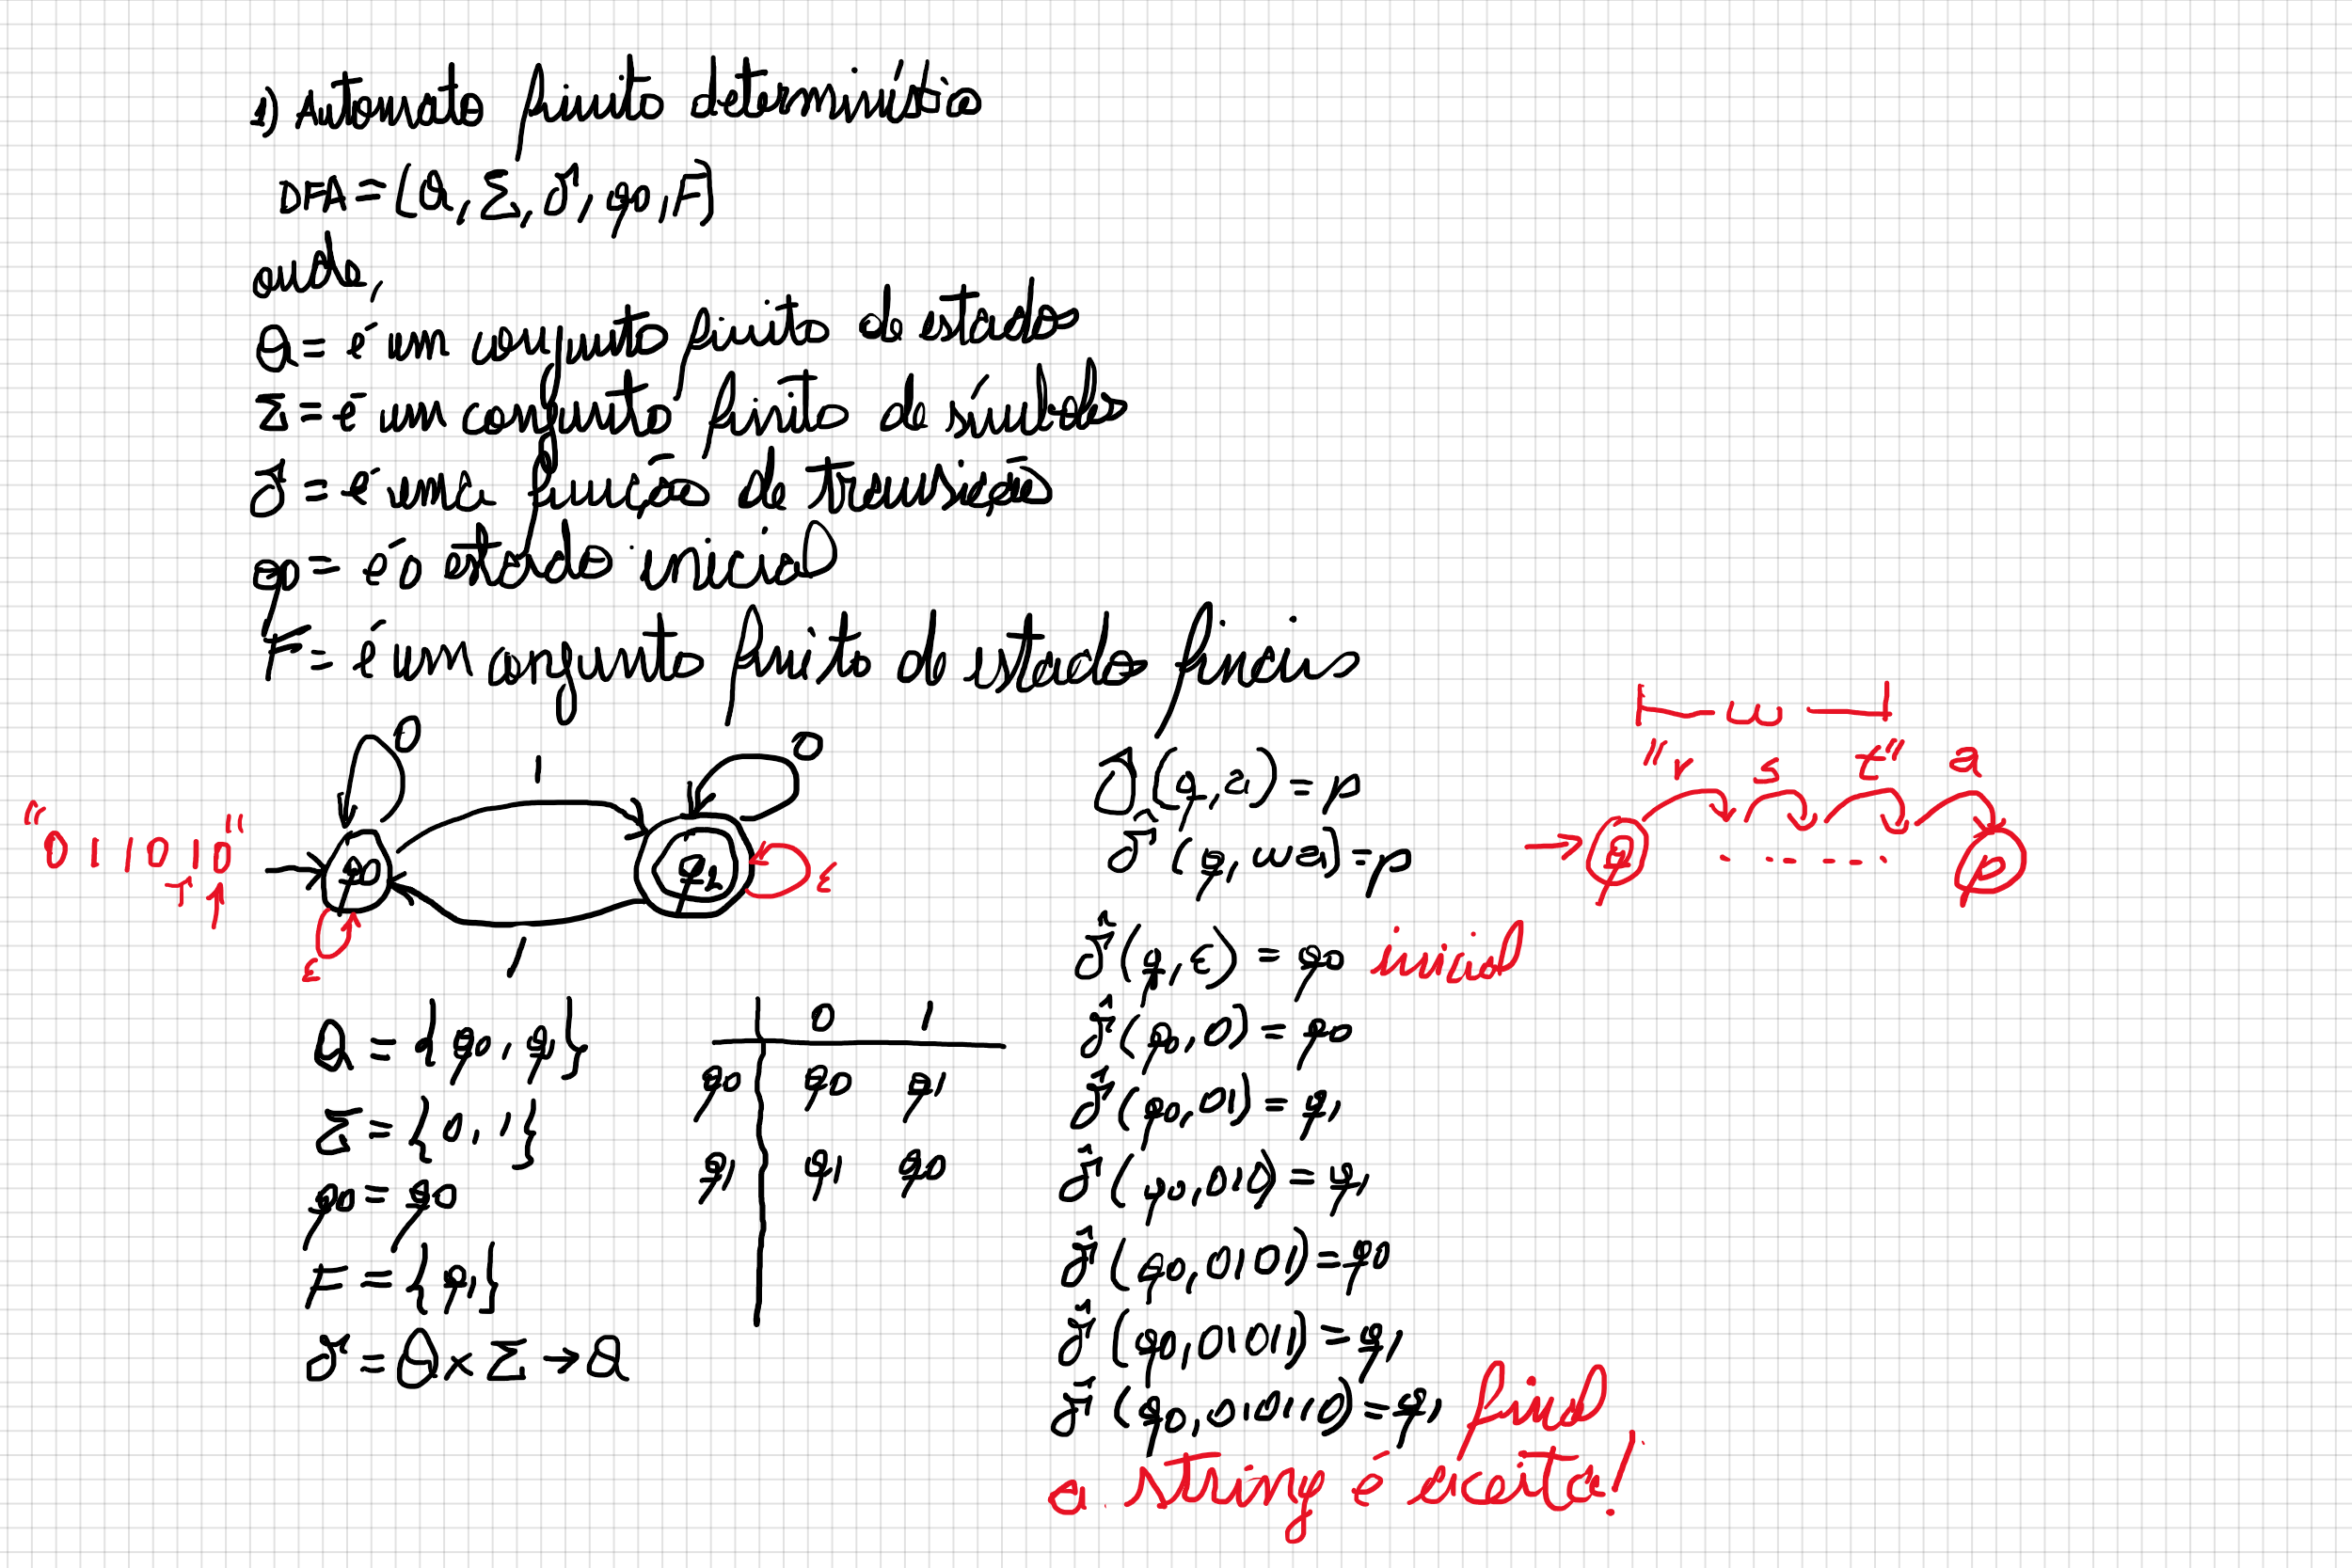 1) Automato finito determinístico
DFA = (Q, Σ, δ, q0, F)
onde,
Q = é um conjunto finito de estados
Σ = é um conjunto finito de símbolos
δ = é uma função de transição
q0 = é o estado inicial
F = é um conjunto finito de estados finais
0
1
0
"011010"
q0
q1
ε
ε
1
Q = {q0, q1}
Σ = {0, 1}
q0 = q0
F = {q1}
δ = Q x Σ → Q
0 1
q0 q0 q1
q1 q1 q0
δ(q, a) = p
δ̂(q, wa) = p
δ̂(q, ε) = q0 inicial
δ̂(q0, 0) = q0
δ̂(q0, 01) = q1
δ̂(q0, 010) = q1
δ̂(q0, 0101) = q0
δ̂(q0, 01011) = q1
δ̂(q0, 010110) = q1 final
a string é aceita!
w
"r s t" a
q p